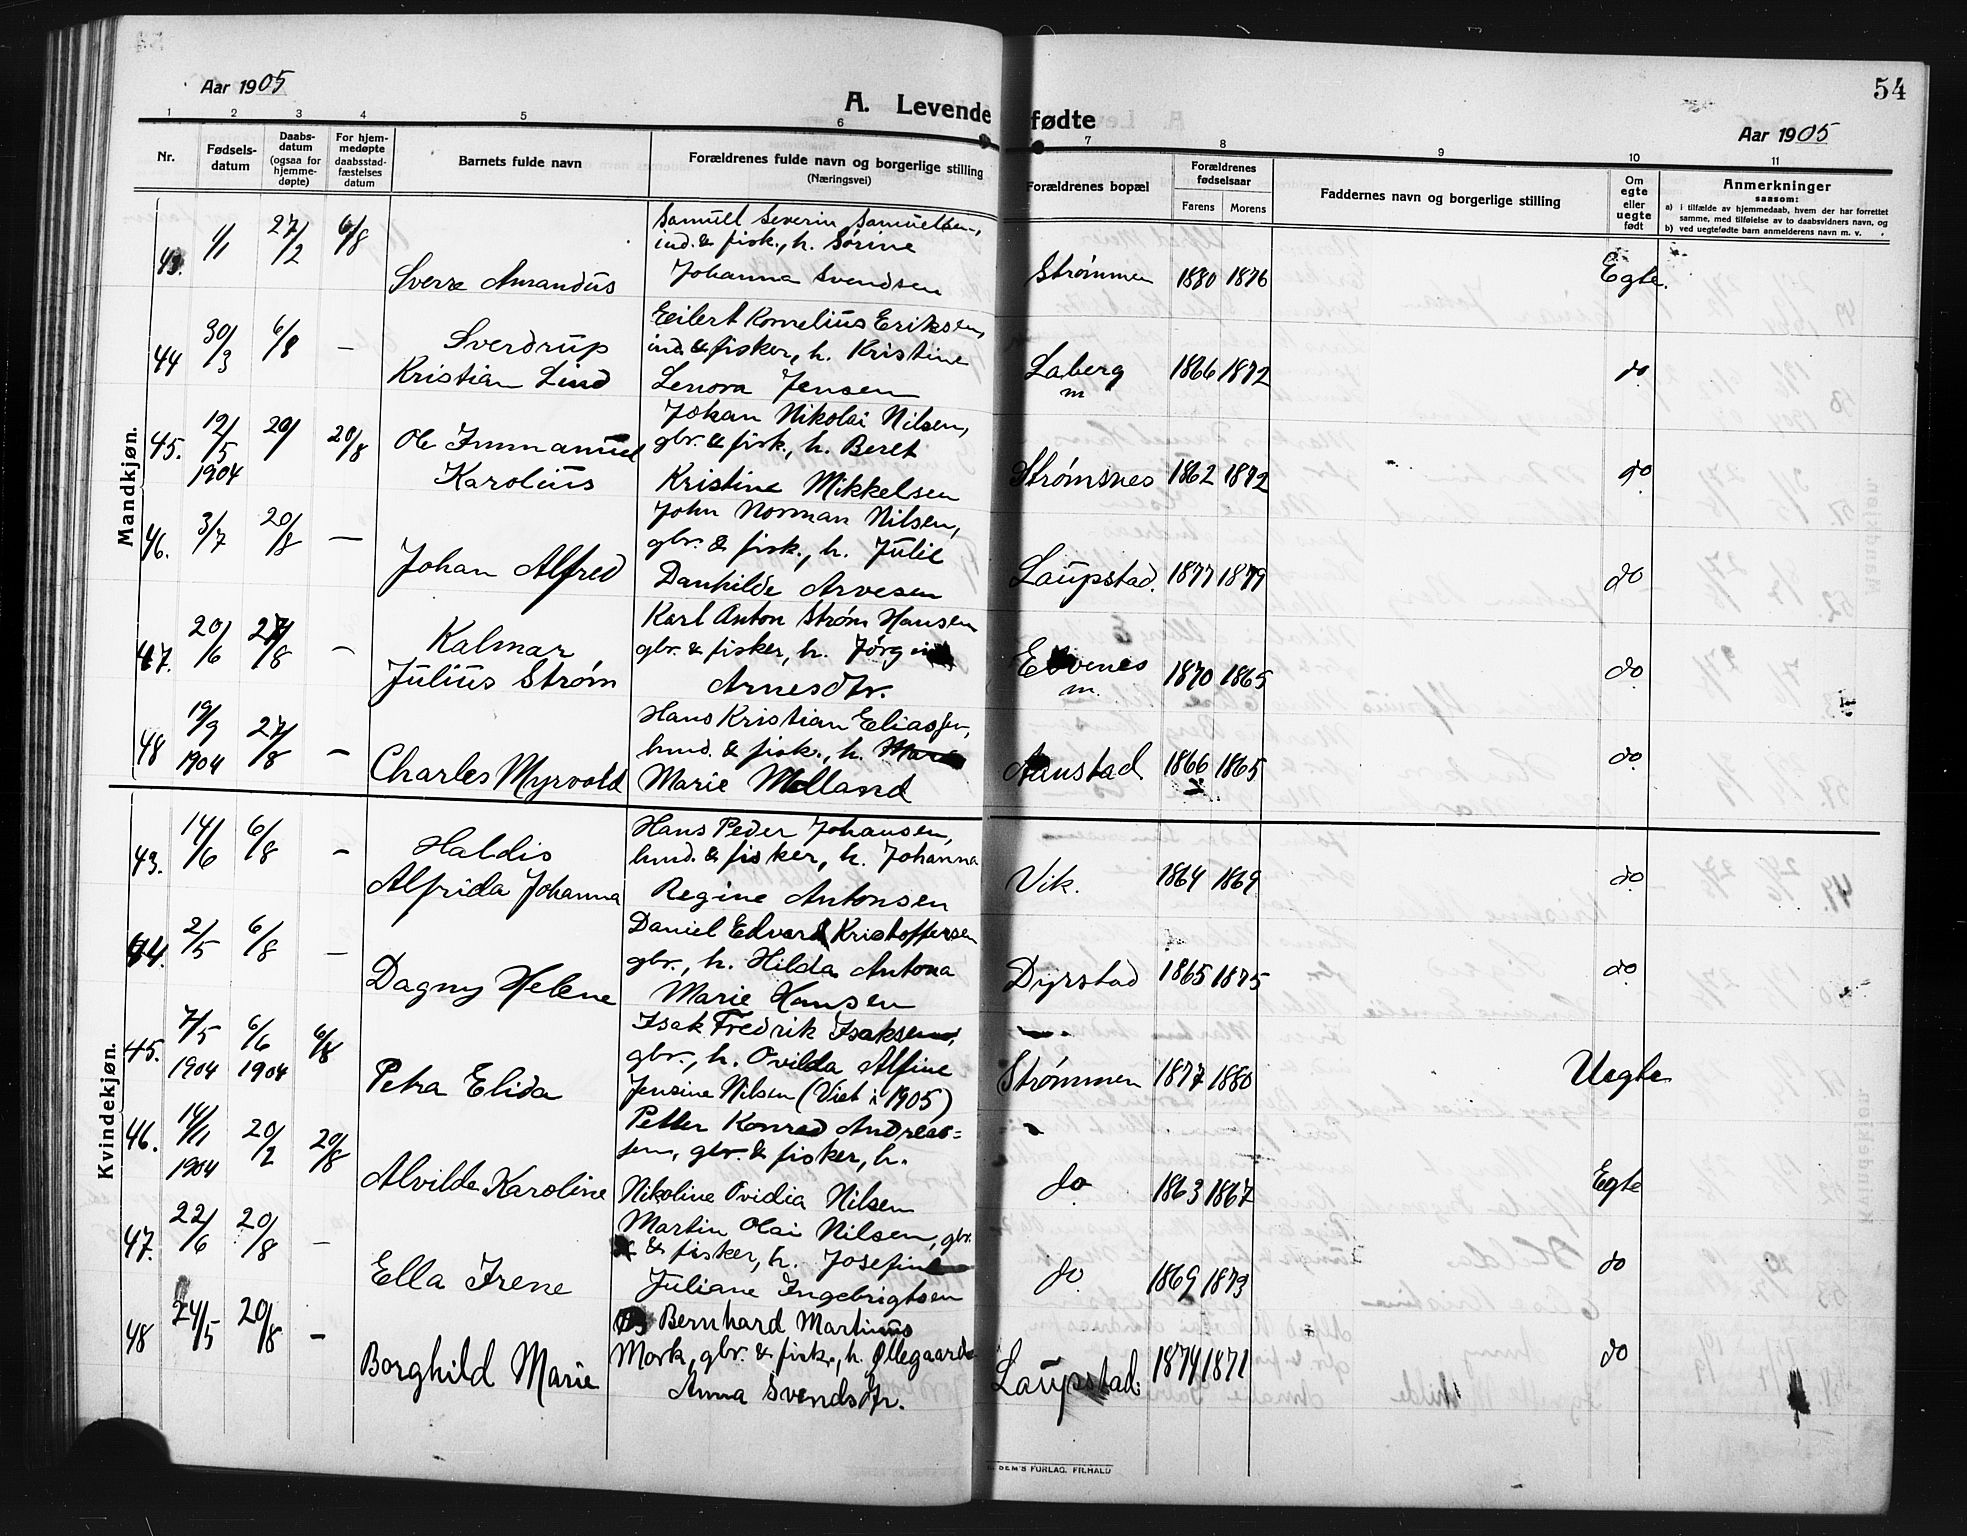 54
Aar 1905
A. Levende fødte
Aar 1905
1 2 3 4 5 6 7 8 9 10 11
Nr.
Fødsels-
datum
Daabs-
datum
(ogsaa for
hjemme-
døpte)
For hjem-
medøpte
daabsstad-
fæstelses
datum
Barnets fulde navn
Forældrenes fulde navn og borgerlige stilling
(Næringsvei)
Forældrenes bopæl
Forældrenes
fødselsaar
Farens Morens
Faddernes navn og borgerlige stilling
Om
egte
eller
uegte
født
Anmerkninger
saasom:
a) i tilfælde av hjemmedaab, hvem der har forrettet
samme, med tilføielse av to daabsvidners navn, og
b) ved uegtefødte barn anmelderens navn m. v.
Mandkjøn.
43. 1/1 27/2 6/8
Sverre Amandus
Samuel Severin Samuelsen,
ind. & fisk., h. Sørine
Johanna Svendsen
Strømmen 1880 1876 Egte.
44 30/3 6/8 —
Sverdrup
Kristian Lind
Eilert Kornelius Eriksen,
ind. & fisker, h. Kristine
Lenora Jensen
Laberg
m
1866 1872 do
45. 12/5 1904 20/ 20/8
Ole Immanuel
Karolius
Johan Nikolai Nilsen,
gbr. & fisk., h. Beret
Kristine Mikkelsen
Strømsnes 1862 1872 do
46. 3/7 20/8 —
Johan Alfred
John Norman Nilsen,
gbr. & fisk., h. Julie
Danhilde Arvesen
Laupstad. 1877 1879 do
47. 20/6 27/8 —
Kalmar
Julius Strøm
Karl Anton Strøm Hansen
gbr. & fisker, h. Jørgine
Arnesdtr.
Evenes
m.
1870 1865 do
48 19/9 1904 27/8 —
Charles Myrvold
Hans Kristian Eliassen,
husd. & fisk., h.
Marie Molland
Aanstad 1866 1865 do
Kvindekjøn.
43. 14/6 6/8 —
Haldis
Alfrida Johanna
Hans Peder Johansen,
husd. & fisker, h. Johanna
Regine Antonsen
Vik. 1864 1869 do
44. 2/5 6/8 —
Dagny Helene
Daniel Edvard Kristoffersen
gbr., h. Hilda Antona
Marie Hansen
Dyrstad 1865 1875 do
45. 7/5 1904 6/6 1904 6/8
Petra Elida
Isak Fredrik Isaksen,
gbr., h. Ovilda Alfine
Jensine Nilsen (Viet i 1905)
Strømmen 1877 1880 Uegte
46. 14/11 1904 20/2 20/8
Alvilde Karoline
Petter Konrad Andreas=
sen, gbr. & fisker, h.
Nikoline Ovidia Nilsen
do. 1863 1867 Egte
47. 22/6 20/8 —
Ella Irene
Martin Olai Nilsen, gbr.
& fisker, h. Josefine
Juliane Ingebrigtsen
do. 1869 1873 do
48 24/5 20/8 —
Borghild Marie
Bernhard Martinus
Mork, gbr. & fisk., h. Øllegaarda
Anna Svendsdtr.
Laupstad. 1874 1871 do
SEM'S FORLAG, FR.HALD